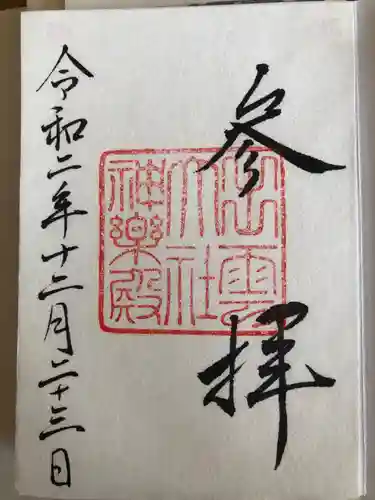 参拝
出雲
大社
神楽殿
令和二年十二月二十三日